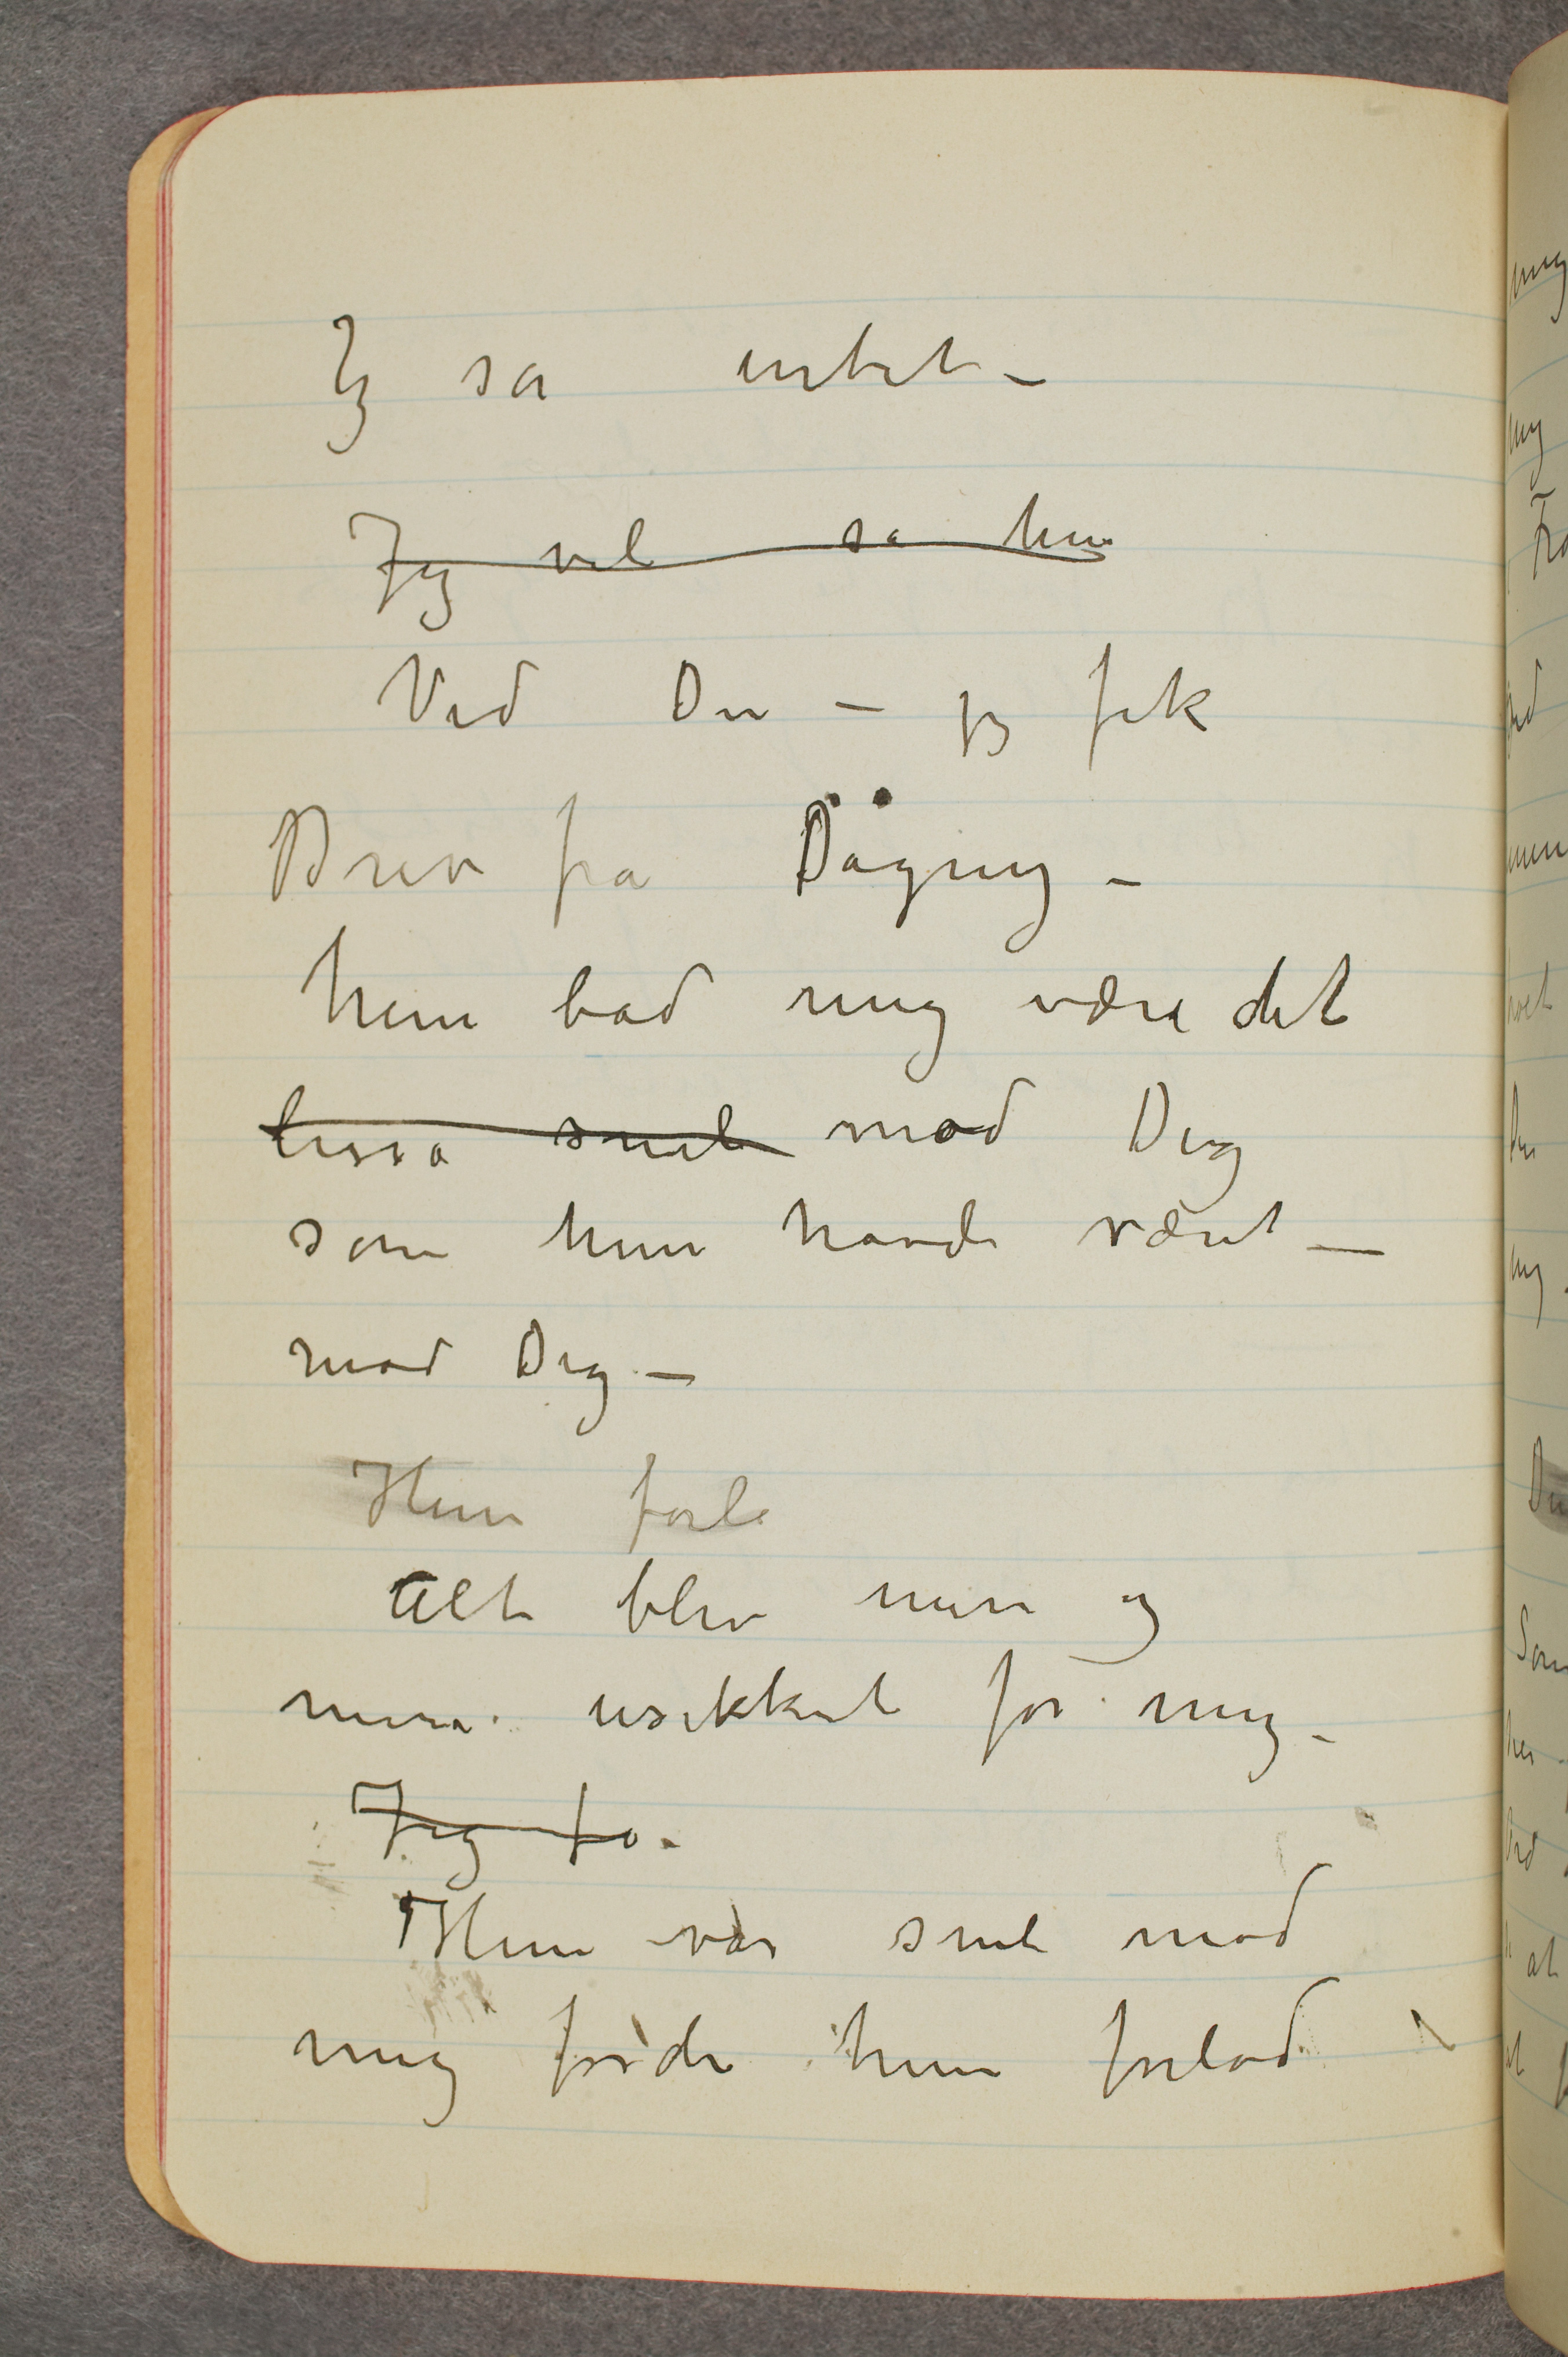 Jeg sa intet –
Jeg vil sa hun
Ved Du – jeg fik
Brev fra Dagny –
hun bad mig være det
lissa snil mod Dig
som hun havde været –
mod Dig –
Hun forl
Alt blev mere og
mere usikkert for mig –
Jeg fo
Hun var snil mod
mig fordi hun forlod